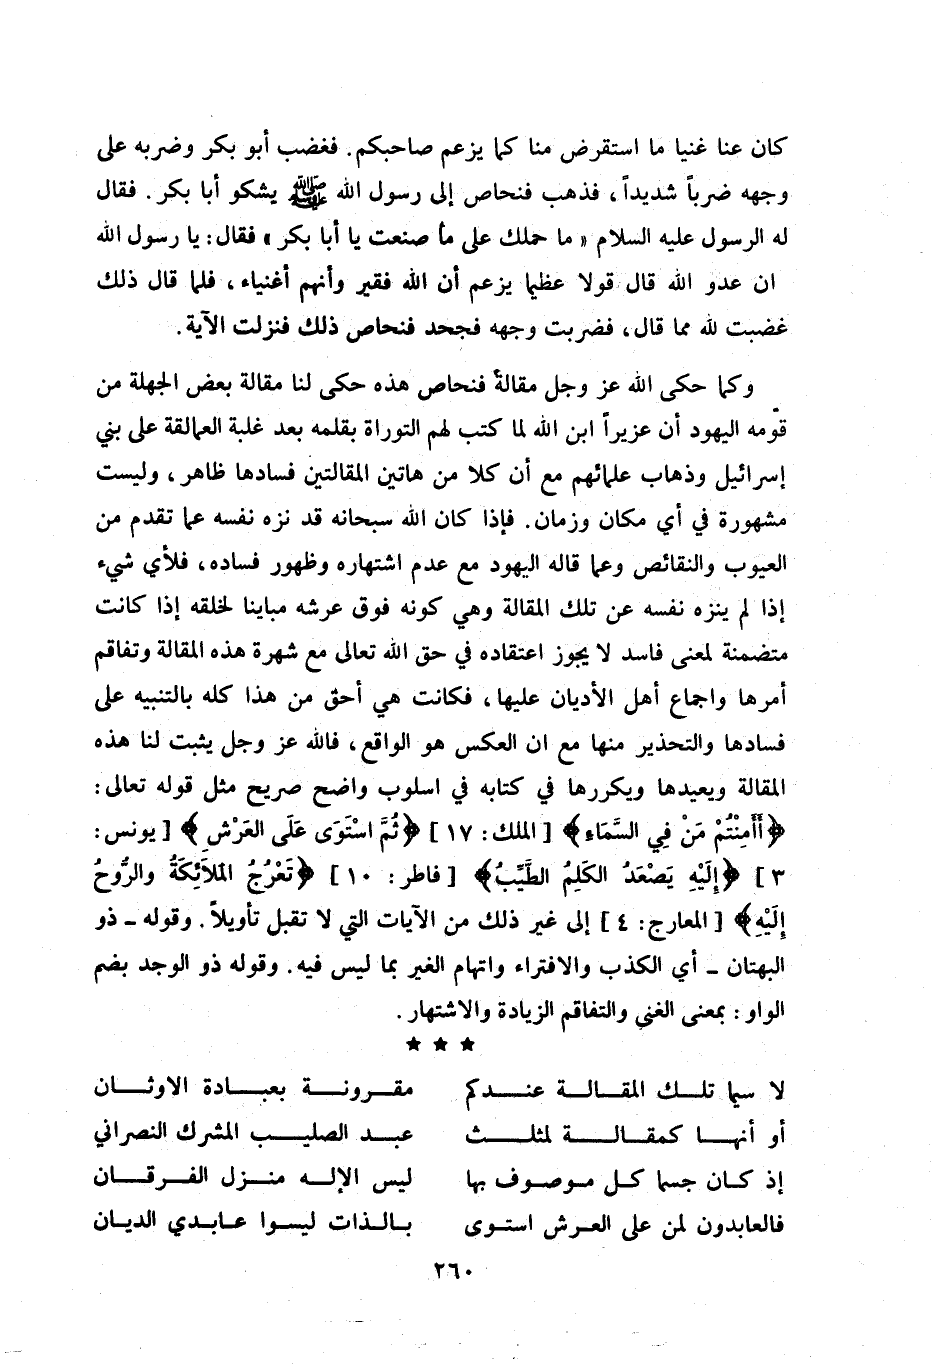 كان عنا غنيا ما استقرض منا كما يزعم صاحبكم. فغضب أبو بكر وضربه على
وجهه ضرباً شديداً، فذهب فنحاص إلى رسول الله ﷺ يشكو أبا بكر. فقال
له الرسول عليه السلام « ما حملك على ما صنعت يا أبا بكر » فقال: يا رسول الله
ان عدو الله قال قولا عظيما يزعم أن الله فقير وأنهم أغنياء، فلما قال ذلك
غضبت لله مما قال، فضربت وجهه فجحد فنحاص ذلك فنزلت الآية.
وكما حكى الله عز وجل مقالة فنحاص هذه حكى لنا مقالة بعض الجهلة من
قومه اليهود أن عزيراً ابن الله لما كتب لهم التوراة بقلمه بعد غلبة العمالقة على بني
إسرائيل وذهاب علمائهم مع أن كلا من هاتين المقالتين فسادها ظاهر، وليست
مشهورة في أي مكان وزمان. فإذا كان الله سبحانه قد نزه نفسه عما تقدم من
العيوب والنقائص وعما قاله اليهود مع عدم اشتهاره وظهور فساده، فلأي شيء
إذا لم ينزه نفسه عن تلك المقالة وهي كونه فوق عرشه مباينا لخلقه إذا كانت
متضمنة لمعنى فاسد لا يجوز اعتقاده في حق الله تعالى مع شهرة هذه المقالة وتفاقم
أمرها واجماع أهل الأديان عليها، فكانت هي أحق من هذا كله بالتنبيه على
فسادها والتحذير منها مع ان العكس هو الواقع، فالله عز وجل يثبت لنا هذه
المقالة ويعيدها ويكررها في كتابه في اسلوب واضح صريح مثل قوله تعالى:
﴿أَأَمِنْتُمْ مَنْ فِي السَّمَاءِ﴾ [الملك: ١٧] ﴿ثُمَّ اسْتَوَى عَلَى العَرْشِ﴾ [يونس:
٣] ﴿إِلَيْهِ يَصْعَدُ الكَلِمُ الطَّيِّبُ﴾ [فاطر: ١٠] ﴿تَعْرُجُ المَلَائِكَةُ والرُّوحُ
إِلَيْهِ﴾ [المعارج: ٤] إلى غير ذلك من الآيات التي لا تقبل تأويلاً. وقوله ـ ذو
البهتان ـ أي الكذب والافتراء واتهام الغير بما ليس فيه. وقوله ذو الوجد بضم
الواو: بمعنى الغني والتفاقم الزيادة والاشتهار.
★ ★ ★
لا سيما تلك المقالة عندكم مقرونة بعبادة الاوثان
أو أنها كمقالة لمثلث عبد الصليب المشرك النصراني
إذ كان جسما كل موصوف بها ليس الإله منزل الفرقان
فالعابدون لمن على العرش استوى بالذات ليسوا عابدي الديان
٢٦٠